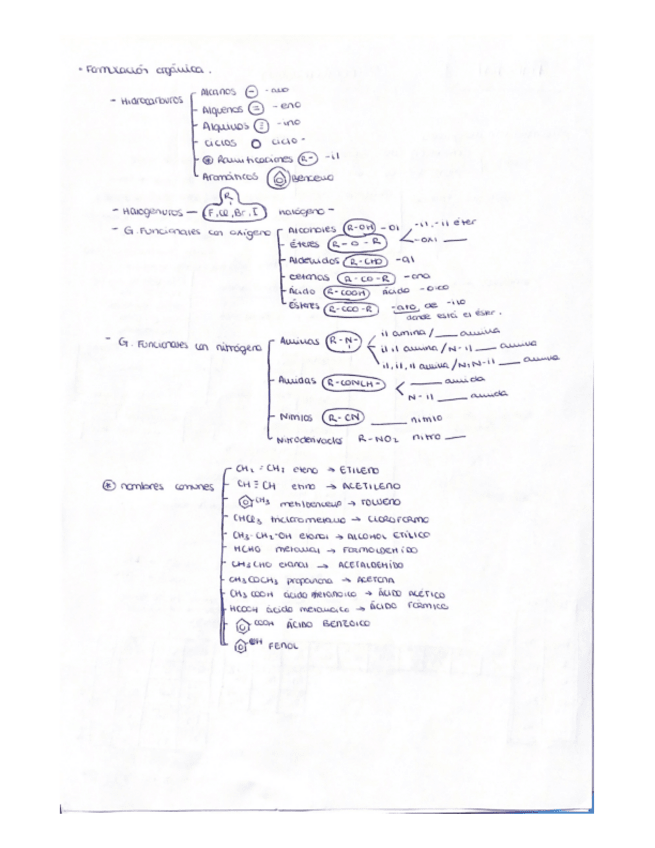 - Formulación orgánica.
- Hidrocarburos
Alcanos - -ano
Alquenos = -eno
Alquinos ≡ -ino
Ciclos ciclo-
* Ramificaciones R- -il
Aromáticos Benceno
- Halogenuros — R F, Cl, Br, I halógeno -
- G. Funcionales con oxígeno
Alcoholes R-OH -ol
Éteres R-O-R -il, -il éter
-oxi ___
Aldehídos R-CHO -al
Cetonas R-CO-R -ona
Ácido R-COOH ácido -oico
Ésteres R-COO-R -ato de -ilo
donde está el éster.
- G. Funcionales con nitrógeno
Aminas R-N- il amina / ___ amina
il il amina / N-il ___ amina
il, il, il amina / N,N-il ___ amina
Amidas R-CONH- ___ amida
N-il ___ amida
Nitrilos R-CN ___ nitrilo
Nitroderivados R-NO2 nitro ___
* nombres comunes
CH2=CH2 eteno → ETILENO
CH≡CH etino → ACETILENO
CH3 metilbenceno → TOLUENO
CHCl3 triclorometano → CLOROFORMO
CH3-CH2-OH etanol → ALCOHOL ETÍLICO
HCHO metanal → FORMOLDEHÍDO
CH3CHO etanal → ACETALDEHÍDO
CH3COCH3 propanona → ACETONA
CH3COOH ácido metanoico → ÁCIDO ACÉTICO
HCOOH ácido metanoico → ÁCIDO FÓRMICO
COOH ÁCIDO BENZOICO
OH FENOL